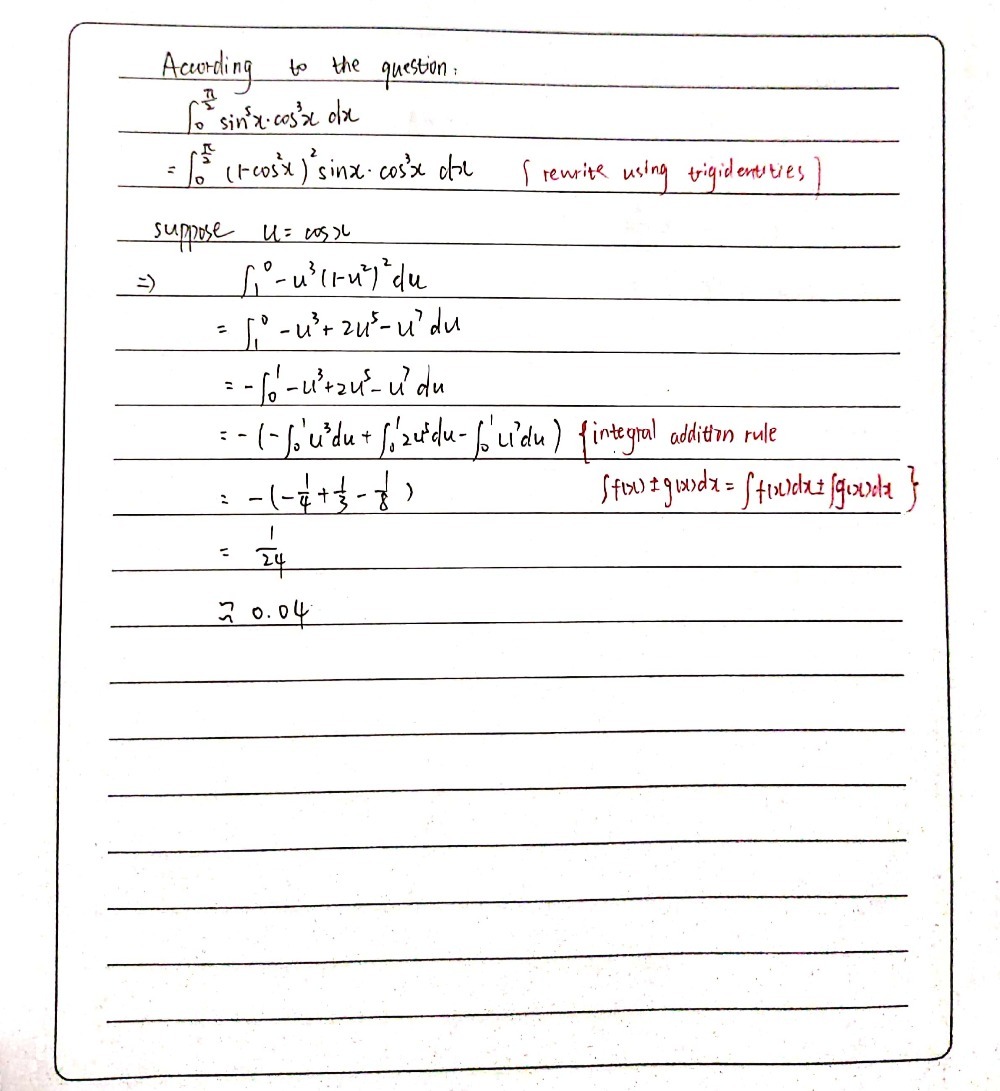 According to the question:
∫₀^(π/2) sin⁵x·cos³x dx
= ∫₀^(π/2) (1-cos²x)² sinx · cos³x dx { rewrite using trigidentities }
suppose u = cosx
⇒ ∫₁⁰ -u³(1-u²)² du
= ∫₁⁰ -u³ + 2u⁵ - u⁷ du
= -∫₀¹ -u³ + 2u⁵ - u⁷ du
= -(-∫₀¹ u³du + ∫₀¹ 2u⁵du - ∫₀¹ u⁷du) { integral addition rule
= -(-1/4 + 1/3 - 1/8) ∫f(x) ± g(x)dx = ∫f(x)dx ± ∫g(x)dx }
= 1/24
≈ 0.04